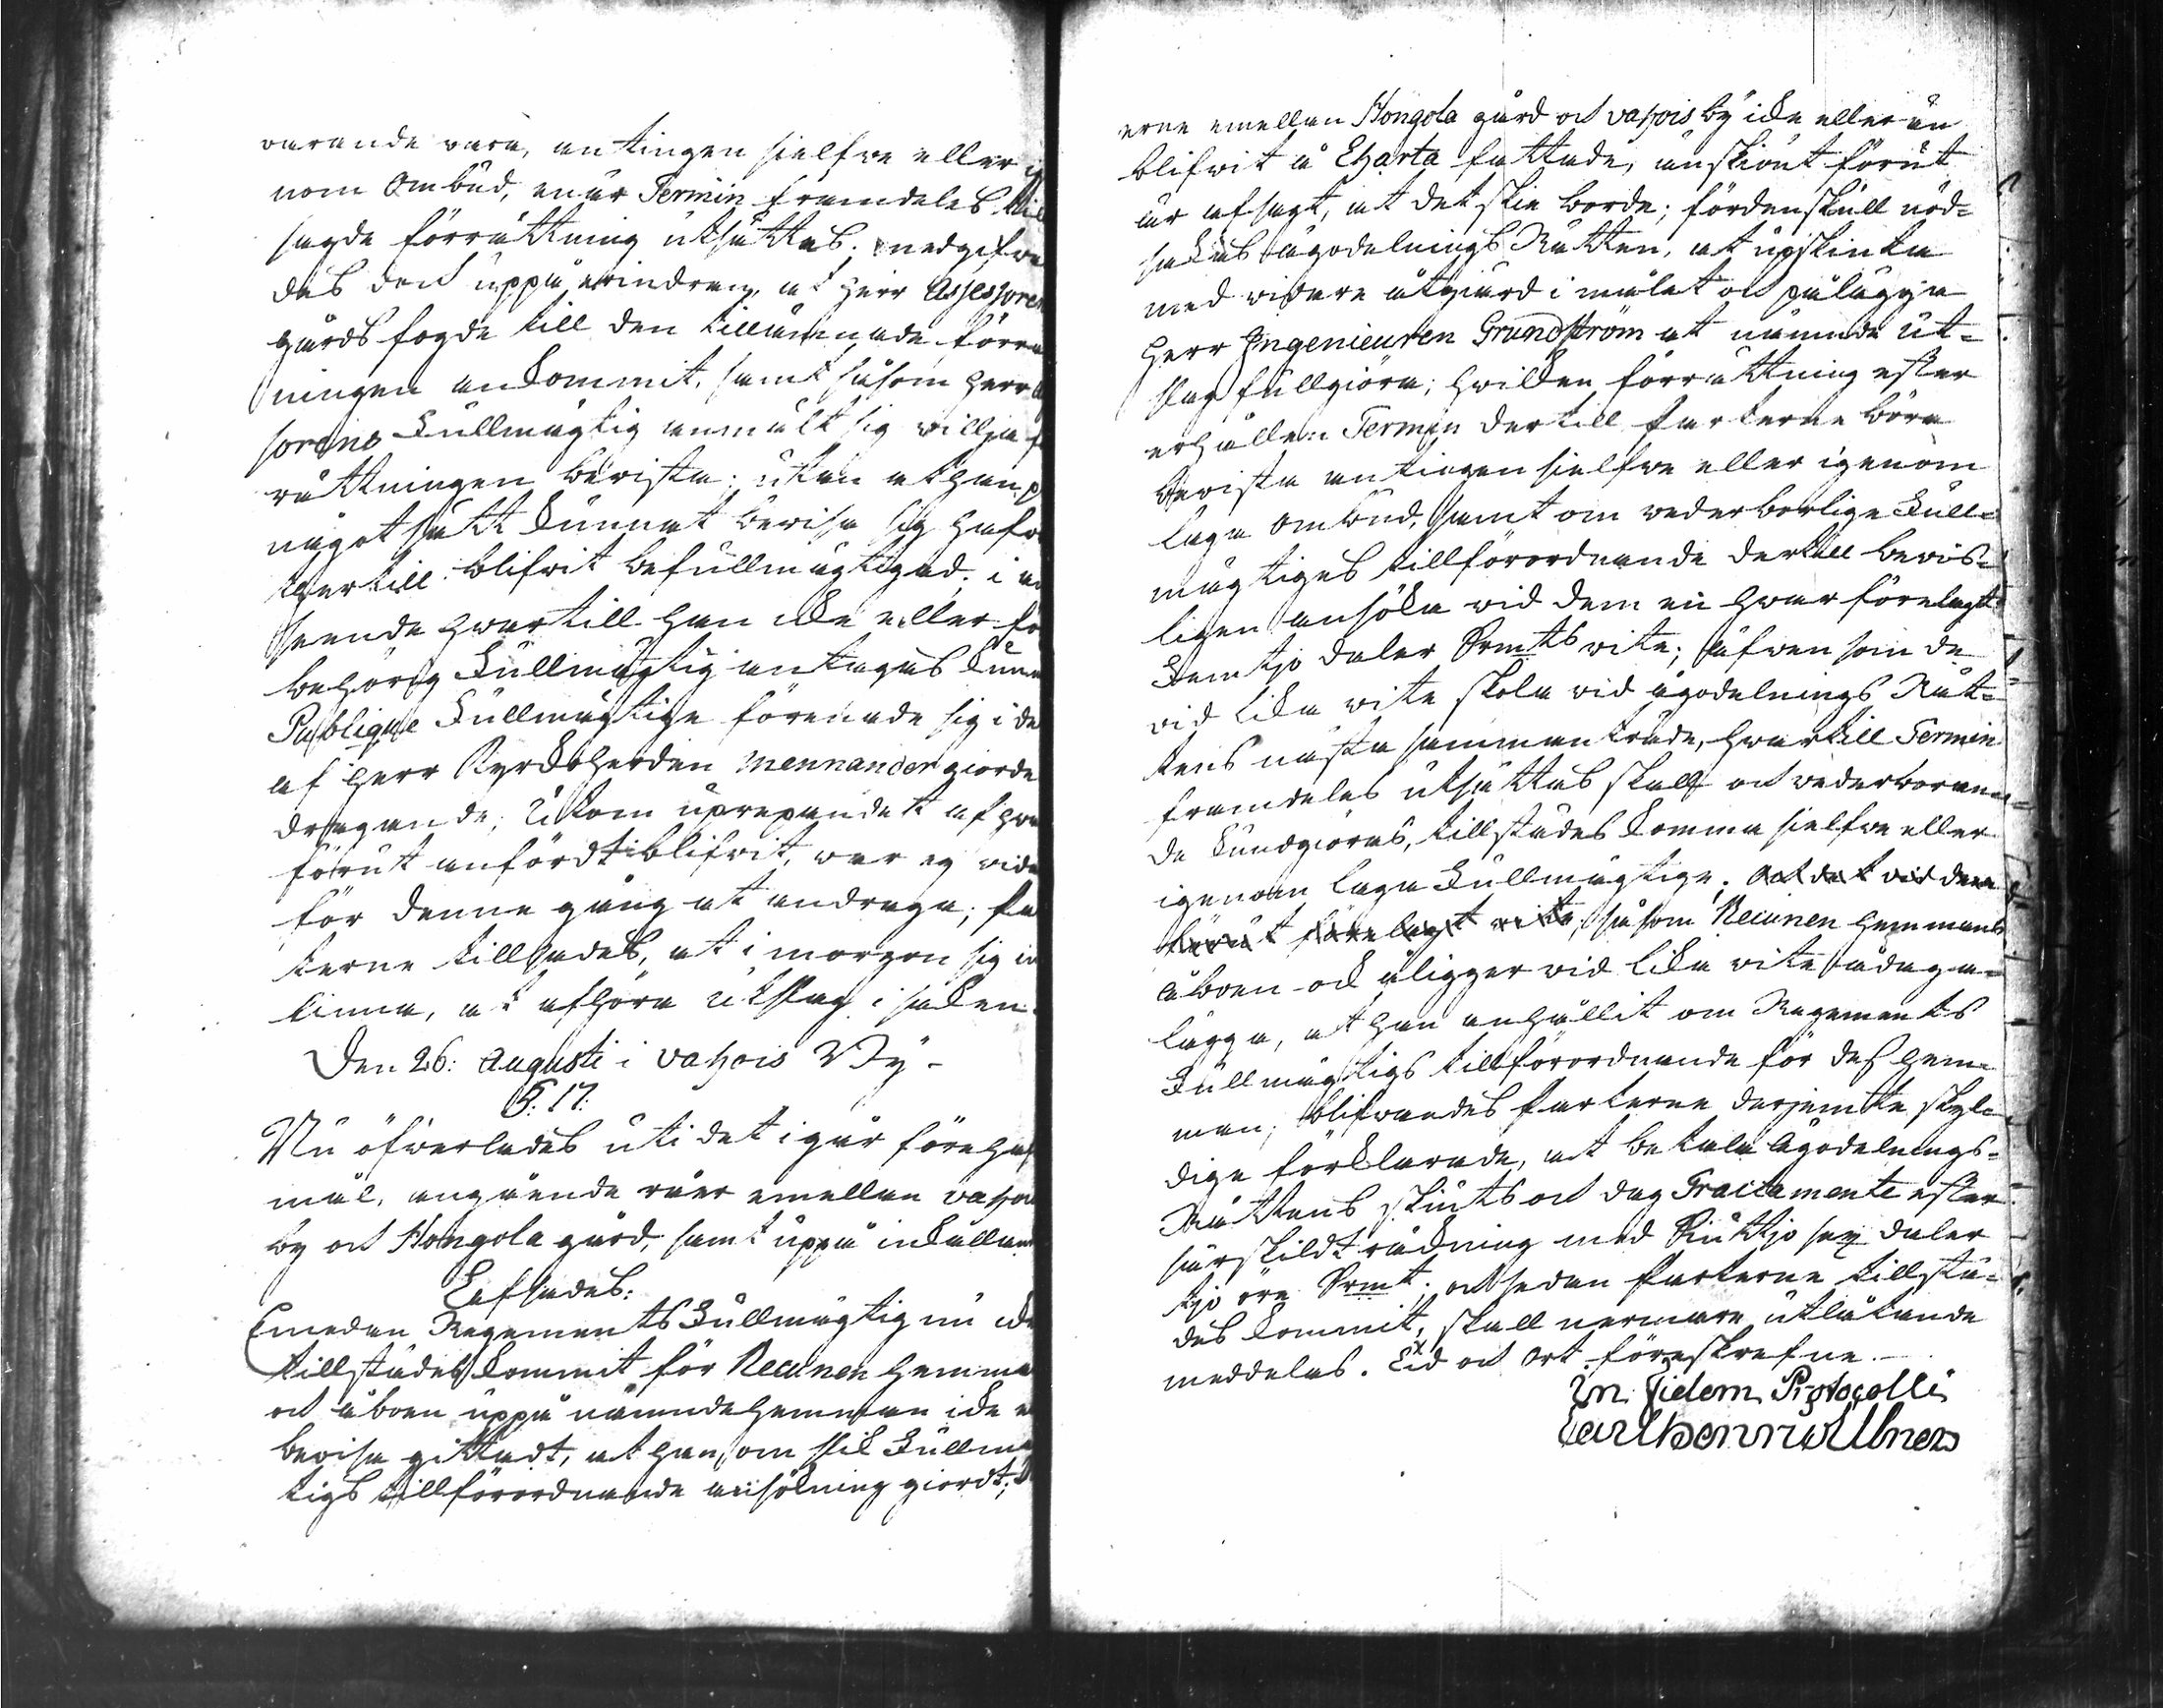 varande vara, antingen sielfve eller i
nom Ombud, enär Termin framdeles till
sagde förrättning utsättes; medgifvan
des dock uppå erindran, at Herr Assessoren
gårdsfogde till den tillämnade förrä
ningen ankommit, samt såsom Herr A
sorens Fullmägtig anmält sig villja f
rättningen bevista; utan at han p
något sätt kunnat bevisa sig hafva
thertill blifvit befullmägtigad, i an
seende hvartill han icke eller för
behörig Fullmägtig antagas kunn
Publique Fullmägtige förenade sig i de
af Herr Kyrckoherden Mennander giorde
dragande; Utom uprepandet af hva
förut anfördt blifvit, var ej vida
för denne gång at andraga; Par
terne tillsades, at i morgon sig in
finna, at afhöra utslag i saken.
Den 26: Augusti i Vahois By
§: 17.
Nu öfverlades uti det i går förehaf
mål, angående råer emellan Vahois
by och Hongola gård, samt uppå inkallan
Eafsades:
Emedan Regements Fullmägtig nu icke
tillstädes kommit för Recunen hemma
och åboen uppå nämnde hemman icke e
bevisa gittadt, at han om slik Fullmä
tigs tillförordnande ansökning giordt;
erne emellan Hongola gård och Vahois by icke eller än
blifvit å Charta fattade, änskiönt förut
är afsagt, at det skie borde; fördenskull nöd-
sakas ägodelnings Rätten, at upskiuta
med vidare åtgiärd i målet och pålägga
Herr Ingenieuren Grundström at nämnde ut-
slag fullgiöra; hvilken förrättning efter
erhållen Termin dertill Parterne böra
bevista antingen sielfve eller igenom
laga ombud, samt om vederbörlige Full-
mägtiges tillförordnande dertill bevis-
ligen ansöka vid dem en hvar förelagt
Femtijo daler Srmts vite; äfven som de
vid lika vite skola vid ägodelnings Rät-
tens nästa sammanträde, hvartill Termin
framdeles utsättas skall och vederböran-
de kundgiöras, tillstädes komma sielfve eller
igenom laga Fullmägtige; och det vid dem
förut förelagt vite, såsom Recunen hemmans
åboen och åligger vid lika vite ådaga-
lägga, at han anhållit om Regements
Fullmägtigs tillförordnande för dess hem-
man; blifvandes Parterne derjemte skyl-
dige förklarade, at betala ägodelnings-
Rättens skiuts och dag Tractamente efter
särskildt räkning med Siuttijo sex daler
tjo öre Srmt; och sedan Parterne tillstä-
des kommit, skall nermare utlåtande
meddelas. Tid och Ort föreskrefne.
In fidem Protocolli
Carl Henric Ubner